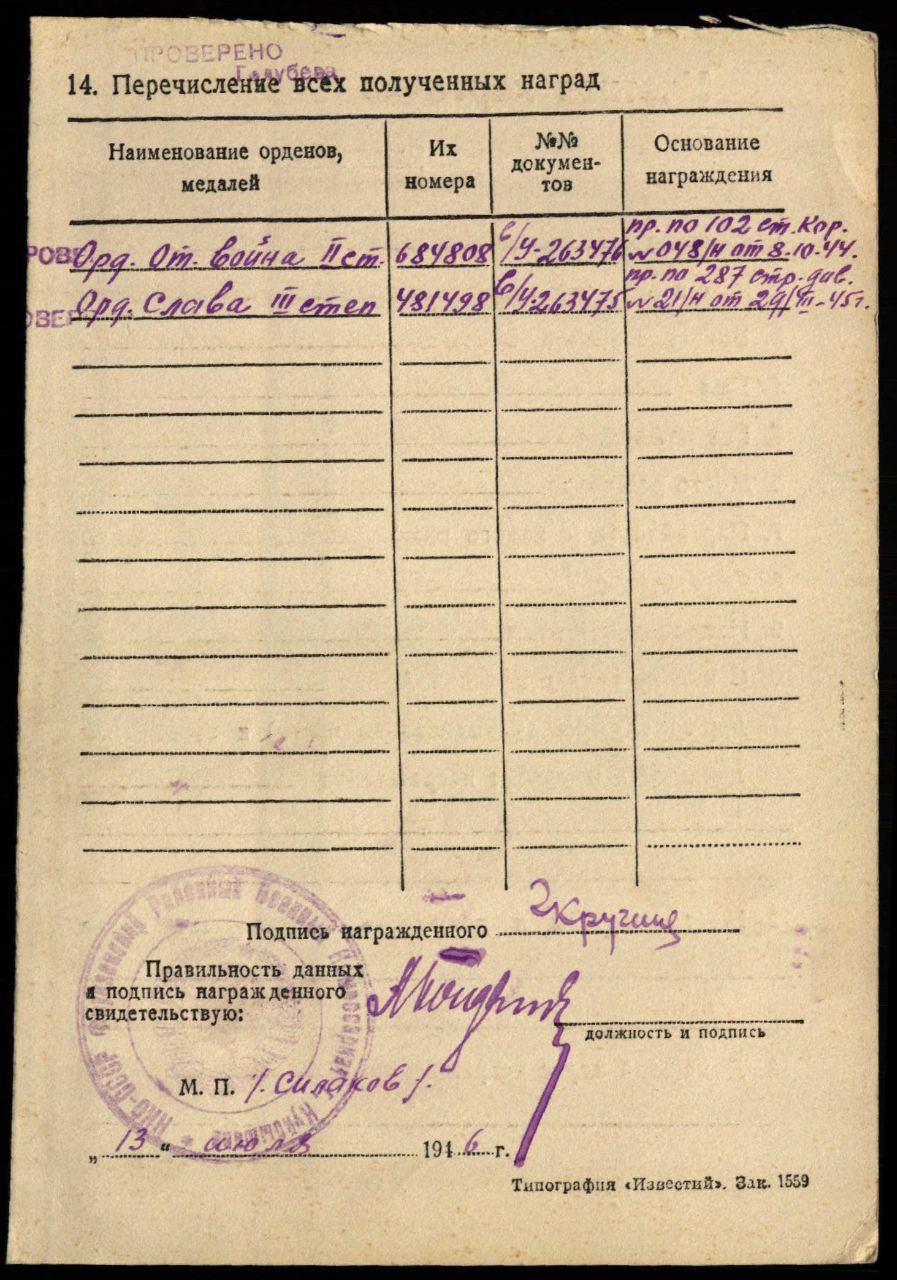 ПРОВЕРЕНО
Голубева
14. Перечисление всех полученных наград
Наименование орденов, медалей
Их номера
№№ докумен-тов
Основание награждения
Орд. От. война II ст. 684808 в/У-263476 пр. по 102 ст. кор. №048/н от 8-10-44.
Орд. Слава III степ 481498 в/У-263475 пр. по 287 стр. див. №21/н от 29/III-45г.
Подпись награжденного
Правильность данных
и подпись награжденного
свидетельствую:
должность и подпись
М. П. /. Силаков /.
„ 13 “ июля 1946 г.
Типография «Известий». Зак. 1559